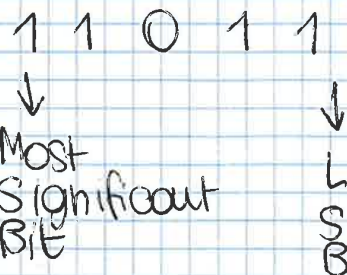 1 1 0 1 1
Most
Significant
Bit
L
S
B